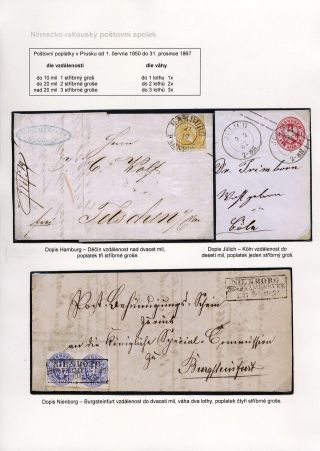 Německo-rakouský poštovní spolek
Poštovní poplatky v Prusku od 1. června 1850 do 31. prosince 1867
dle vzdálenosti dle váhy
do 10 mil 1 stříbrný groš do 1 lothu 1x
do 20 mil 2 stříbrné groše do 2 lothů 2x
nad 20 mil 3 stříbrné groše do 3 lothů 3x
HAMBURG
Tetschen
JÜLICH
Cöln
Dopis Hamburg – Děčín vzdálenost nad dvacet mil,
poplatek tři stříbrné groše.
Dopis Jülich – Köln vzdálenost do
deseti mil, poplatek jeden stříbrný groš.
NIENBORG
Post-Behändigungs-Schein
zurück
an die Königliche Special-Commission
zu
Burgsteinfurt
NIENBORG
Dopis Nienborg – Burgsteinfurt vzdálenost do dvaceti mil, váha dva lothy, poplatek čtyři stříbrné groše.